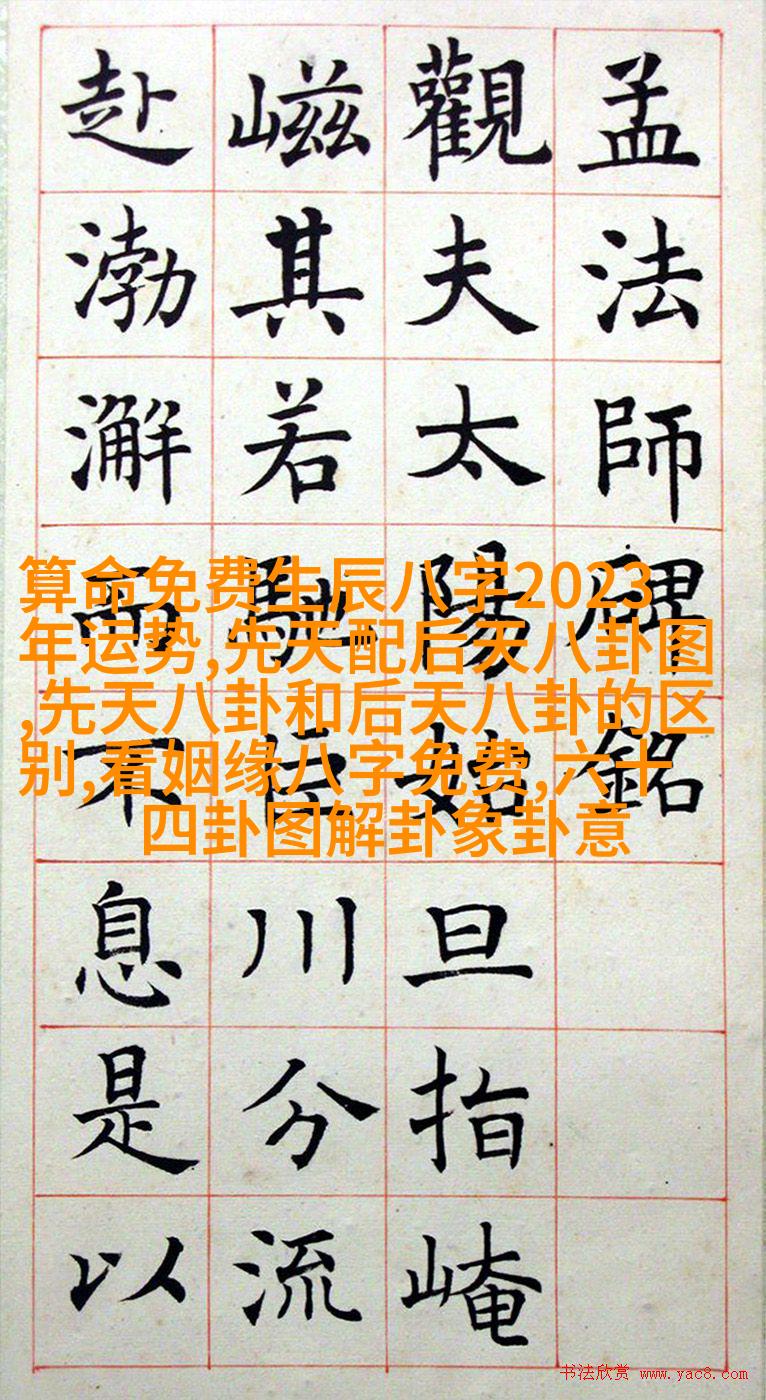 孟法師碑銘
觀夫太陽始旦指崦
嵫其若馳巨川分流
赴渤澥而不息是以
算命免费生辰八字2023
年运势,先天配后天八卦图
,先天八卦和后天八卦的区
别,看姻缘八字免费,六十
四卦图解卦象卦意
书法欣赏 www.yac8.com